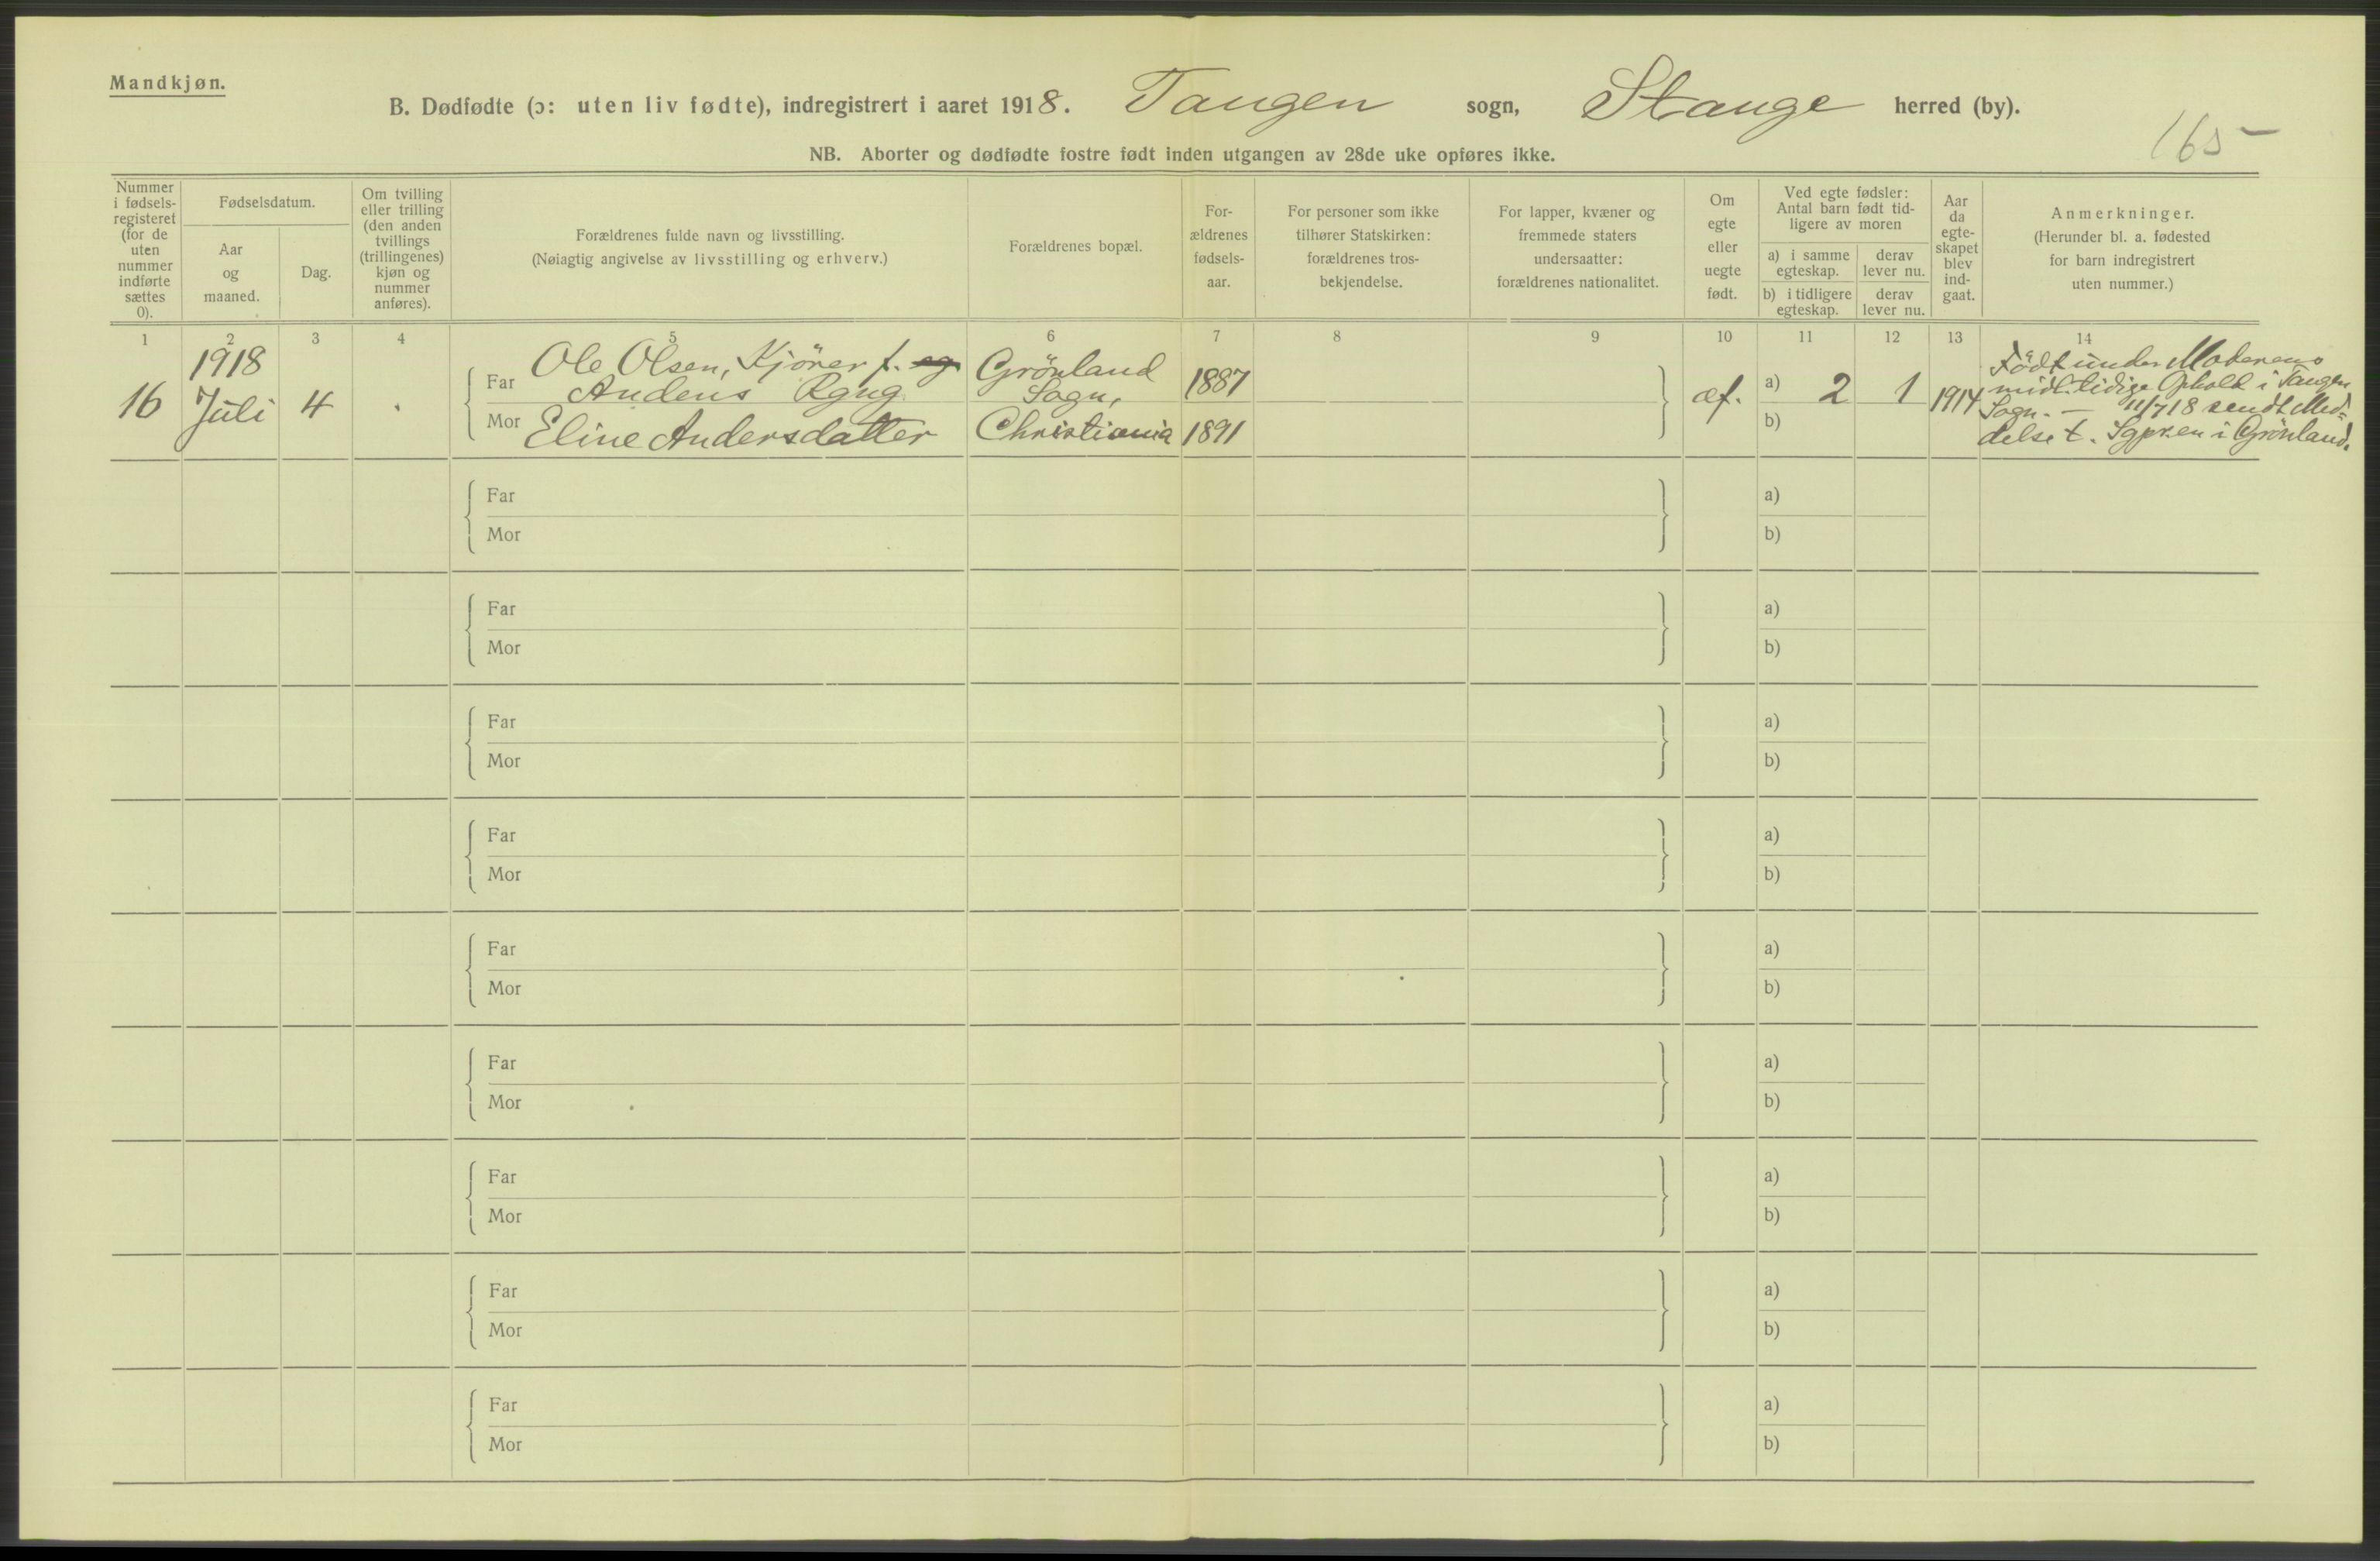 Mandkjøn.
B. Dødfødte (ɔ: uten liv fødte), indregistrert i aaret 1918. Tangen sogn, Stange herred (by).
165
NB. Aborter og dødfødte fostre født inden utgangen av 28de uke opføres ikke.
Nummer
i fødsels-
registeret
(for de
uten
nummer
indførte
sættes
0).
Fødselsdatum.
Aar
og
maaned.
Dag.
Om tvilling
eller trilling
(den anden
tvillings
(trillingenes)
kjøn og
nummer
anføres).
Forældrenes fulde navn og livsstilling.
(Nøiagtig angivelse av livsstilling og erhverv.)
Forældrenes bopæl.
For-
ældrenes
fødsels-
aar.
For personer som ikke
tilhører Statskirken:
forældrenes tros-
bekjendelse.
For lapper, kvæner og
fremmede staters
undersaatter:
forældrenes nationalitet.
Om
egte
eller
uegte
født.
Ved egte fødsler:
Antal barn født tid-
ligere av moren
a) i samme
egteskap.
derav
lever nu.
b) i tidligere
egteskap.
derav
lever nu.
Aar
da
egte-
skapet
blev
ind-
gaat.
Anmerkninger.
(Herunder bl. a. fødested
for barn indregistrert
uten nummer.)
1 2 3 4 5 6 7 8 9 10 11 12 13 14
16
1918
Juli
4
Far Ole Olsen, Kjörer f.
Andens Rgng.
Mor Eline Andersdatter
Grönland
Sogn,
Christiania
1887
1891
æf.
a) 2 1
b)
1914
Född under Moderens
midltidige Ophold i Tangen
Sogn. — 11/7 18 sendt Med-
delse t. Sgpr.en i Grönland.
Far
Mor
a)
b)
Far
Mor
a)
b)
Far
Mor
a)
b)
Far
Mor
a)
b)
Far
Mor
a)
b)
Far
Mor
a)
b)
Far
Mor
a)
b)
Far
Mor
a)
b)
Far
Mor
a)
b)